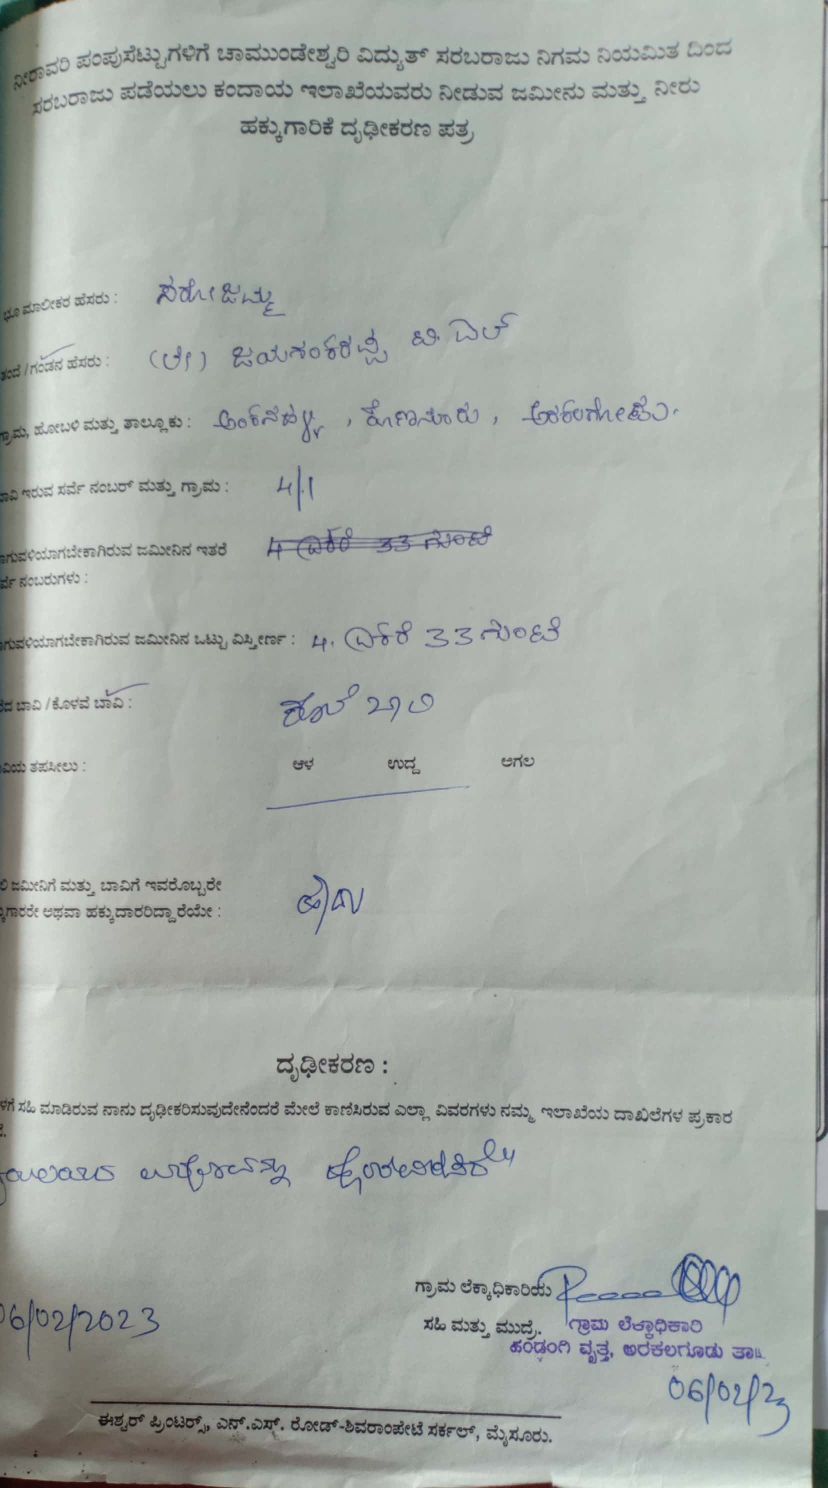 ನೀರಾವರಿ ಪಂಪುಸೆಟ್ಟುಗಳಿಗೆ ಚಾಮುಂಡೇಶ್ವರಿ ವಿದ್ಯುತ್ ಸರಬರಾಜು ನಿಗಮ ನಿಯಮಿತ ದಿಂದ
ಸರಬರಾಜು ಪಡೆಯಲು ಕಂದಾಯ ಇಲಾಖೆಯವರು ನೀಡುವ ಜಮೀನು ಮತ್ತು ನೀರು
ಹಕ್ಕುಗಾರಿಕೆ ದೃಢೀಕರಣ ಪತ್ರ
ಭೂ ಮಾಲೀಕರ ಹೆಸರು : ಸರೋಜಮ್ಮ
ತಂದೆ /ಗಂಡನ ಹೆಸರು : (ಲೇ) ಜಯಶಂಕರಪ್ಪ ಟಿ ಎಲ್
ಗ್ರಾಮ, ಹೋಬಳಿ ಮತ್ತು ತಾಲ್ಲೂಕು : ಅಂಕನಹಳ್ಳಿ, ಕೊಣನೂರು, ಅರಕಲಗೋಡು.
ಇರುವ ಸರ್ವೆ ನಂಬರ್ ಮತ್ತು ಗ್ರಾಮ : 4/1
ಜಮೀನಿನ ಇತರೆ 4 ಎಕರೆ 33 ಗುಂಟೆ
ನಂಬರುಗಳು :
ಜಮೀನಿನ ಒಟ್ಟು ವಿಸ್ತೀರ್ಣ : 4. ಎಕರೆ 33 ಗುಂಟೆ
ಬಾವಿ /ಕೊಳವೆ ಬಾವಿ :
ತಪಸೀಲು : ಆಳ ಉದ್ದ ಅಗಲ
ಜಮೀನಿಗೆ ಮತ್ತು ಬಾವಿಗೆ ಇವರೊಬ್ಬರೇ
ಅಥವಾ ಹಕ್ಕುದಾರರಿದ್ದಾರೆಯೇ : ಹೌದು
ದೃಢೀಕರಣ :
ಸಹಿ ಮಾಡಿರುವ ನಾನು ದೃಢೀಕರಿಸುವುದೇನೆಂದರೆ ಮೇಲೆ ಕಾಣಿಸಿರುವ ಎಲ್ಲಾ ವಿವರಗಳು ನಮ್ಮ ಇಲಾಖೆಯ ದಾಖಲೆಗಳ ಪ್ರಕಾರ
ಗ್ರಾಮ ಲೆಕ್ಕಾಧಿಕಾರಿಯ
06/02/2023
ಸಹಿ ಮತ್ತು ಮುದ್ರೆ.
ಗ್ರಾಮ ಲೆಕ್ಕಾಧಿಕಾರಿ
ಹಂಡ್ರಂಗಿ ವೃತ್ತ, ಅರಕಲಗೂಡು ತಾ||.
06/02/23
ಈಶ್ವರ್ ಪ್ರಿಂಟರ್ಸ್, ಎನ್.ಎಸ್. ರೋಡ್-ಶಿವರಾಂಪೇಟೆ ಸರ್ಕಲ್, ಮೈಸೂರು.